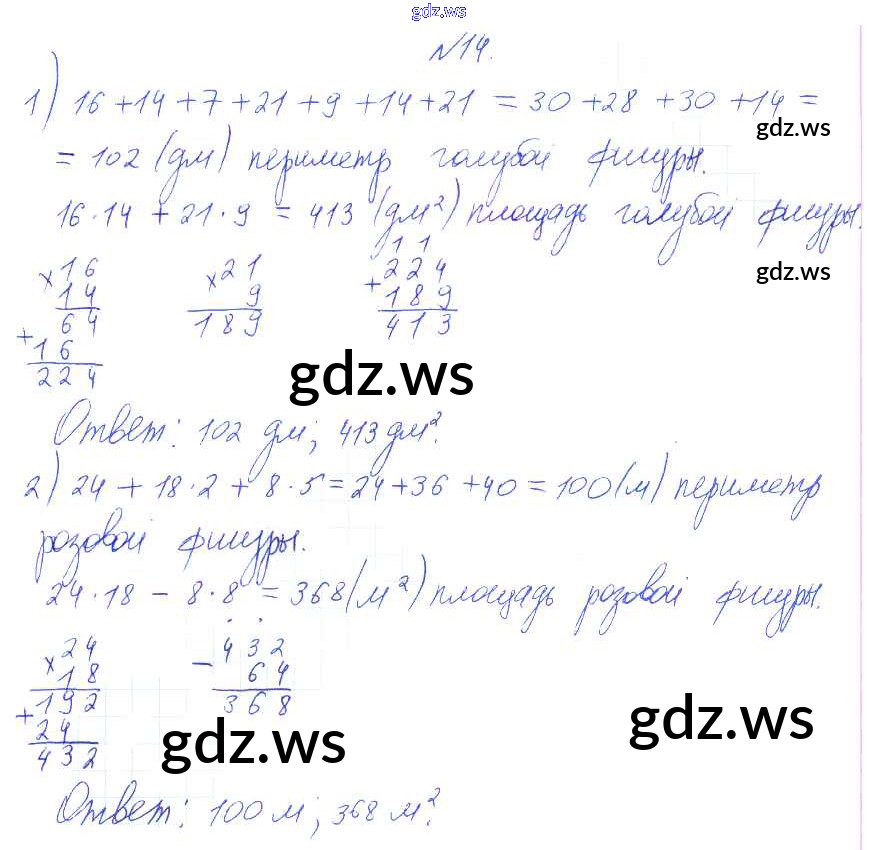 gdz.ws
№14.
1) 16 + 14 + 7 + 21 + 9 + 14 + 21 = 30 + 28 + 30 + 14 =
gdz.ws
= 102 (дм) периметр голубой фигуры.
16 · 14 + 21 · 9 = 413 (дм²) площадь голубой фигуры.
gdz.ws
× 16
14
64
+ 16
224
× 21
9
189
1 1
+ 224
189
413
gdz.ws
Ответ: 102 дм; 413 дм².
2) 24 + 18 · 2 + 8 · 5 = 24 + 36 + 40 = 100 (м) периметр
розовой фигуры.
24 · 18 – 8 · 8 = 368 (м²) площадь розовой фигуры.
× 24
18
192
+ 24
432
– 432
64
368
gdz.ws
gdz.ws
Ответ: 100 м; 368 м².